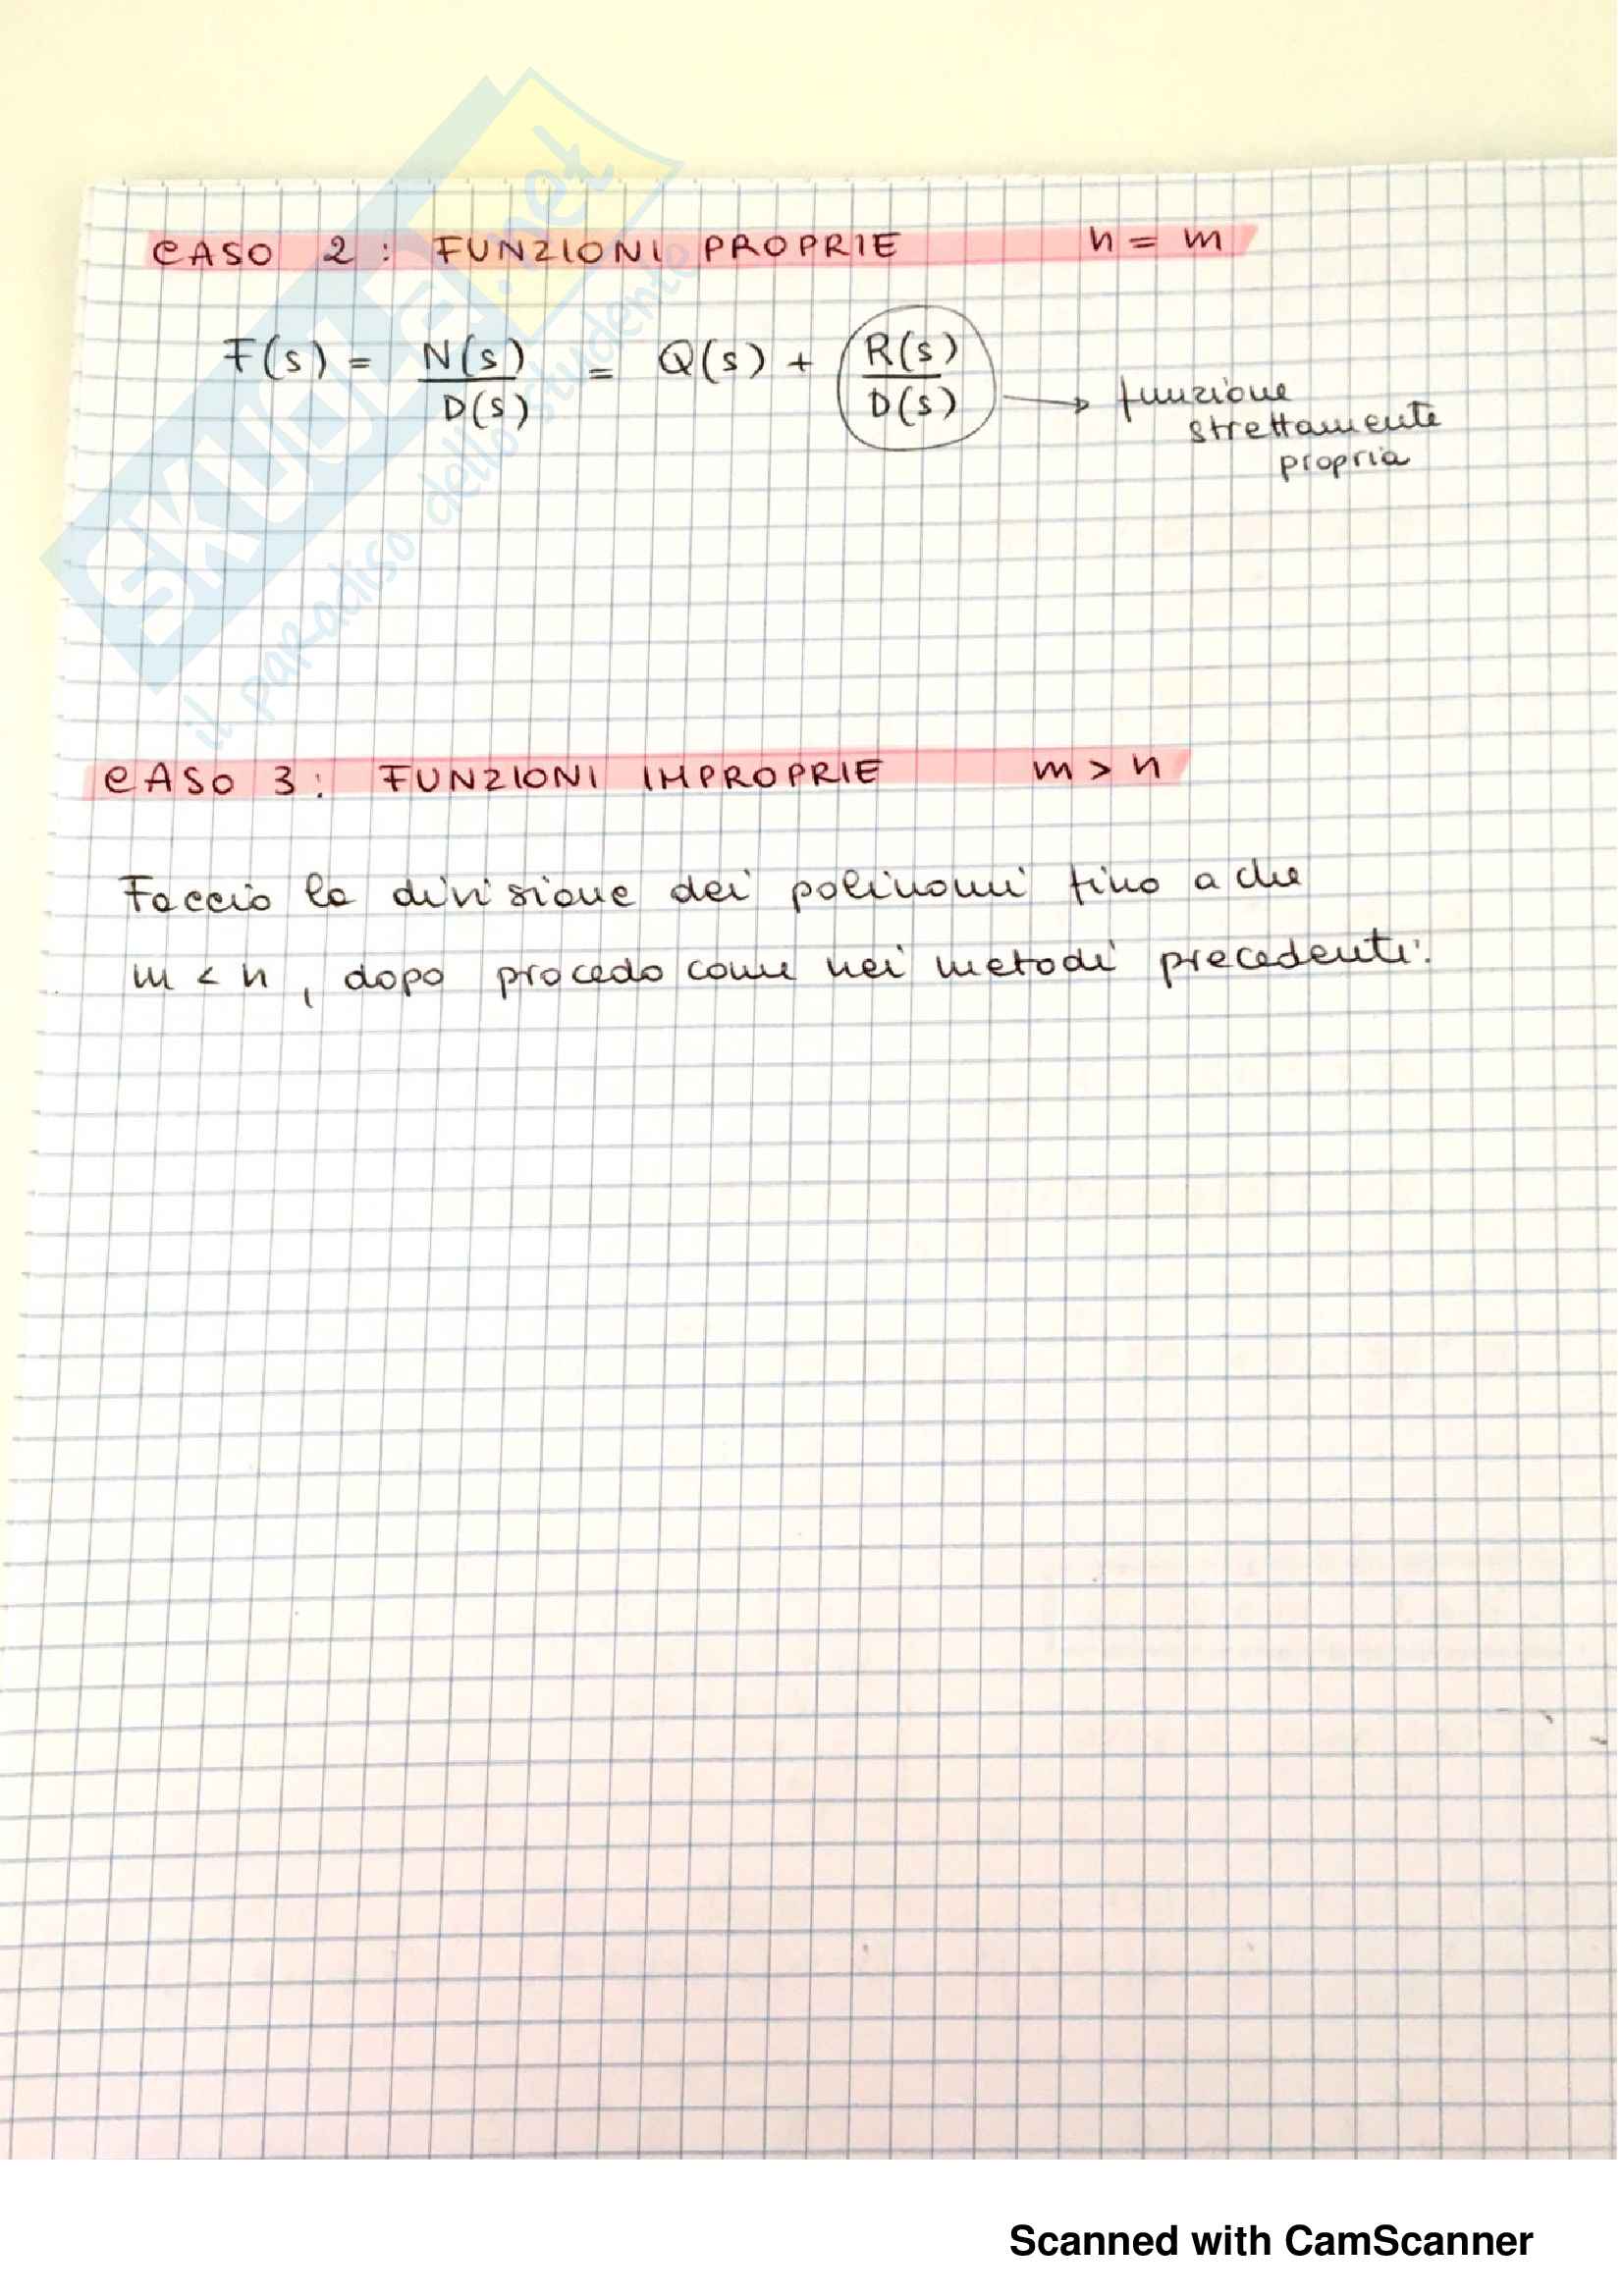 CASO 2 : FUNZIONI PROPRIE n = m
F(s) = N(s)/D(s) = Q(s) + R(s)/D(s) → funzione
strettamente
propria
CASO 3 : FUNZIONI IMPROPRIE m > n
Faccio la divisione dei polinomi fino a che
m < n , dopo procedo come nei metodi precedenti.
SKUOLA.net
il paradiso dello studente
Scanned with CamScanner